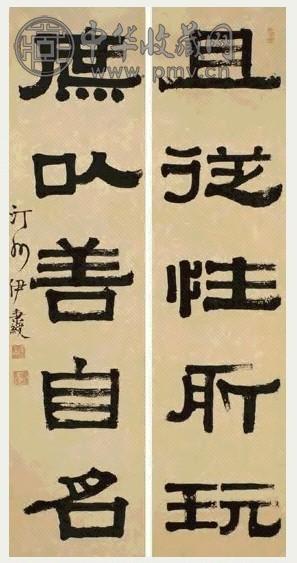 中华收藏网
www.pmv.cn
且從性所玩
庶以善自名
汀州伊秉綬